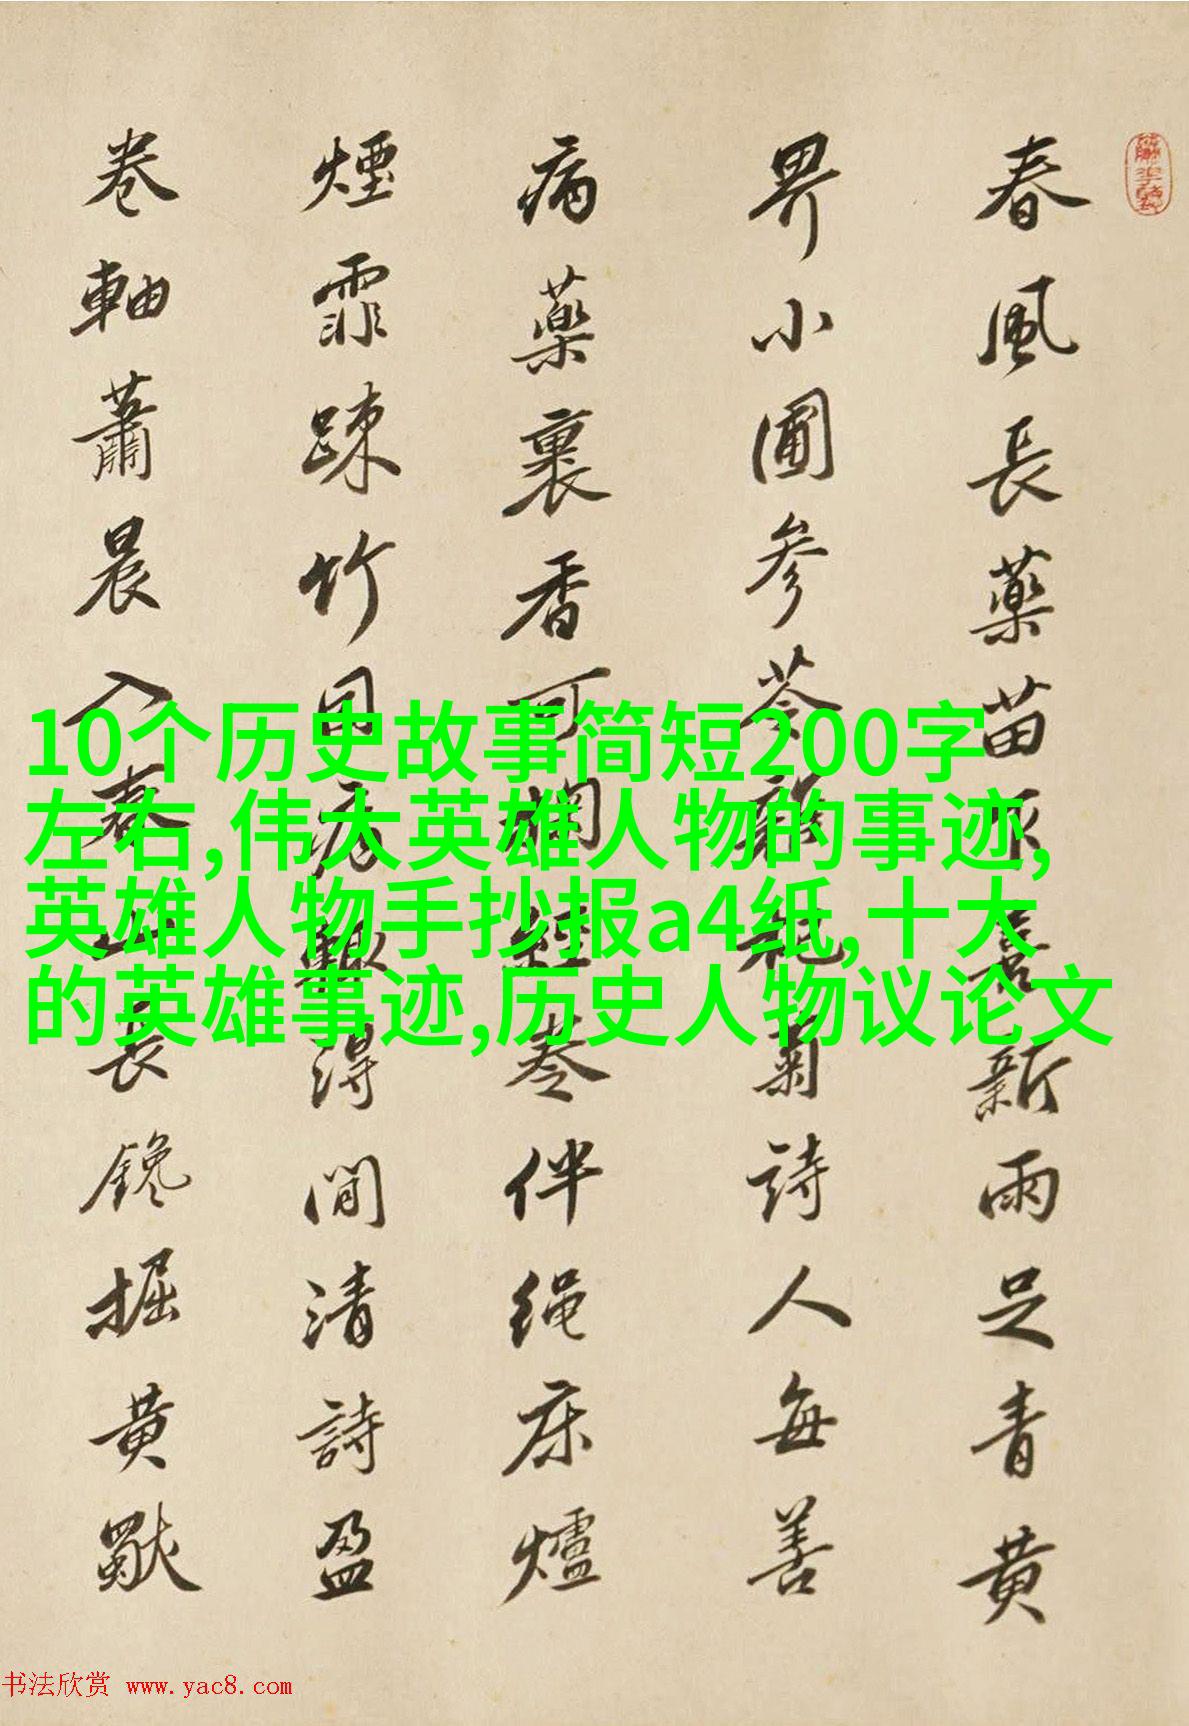 春風長藥苗喜新雨足青黃
界小圃參苓雜杞菊詩人每善
病藥裹香可掬經卷伴绳床爐
煙霏疎竹因病輙得閒清詩盈
卷軸蕭晨入春山長鑱掘黃獨
10个历史故事简短200字
左右,伟大英雄人物的事迹,
英雄人物手抄报a4纸,十大
的英雄事迹,历史人物议论文
书法欣赏 www.yac8.com